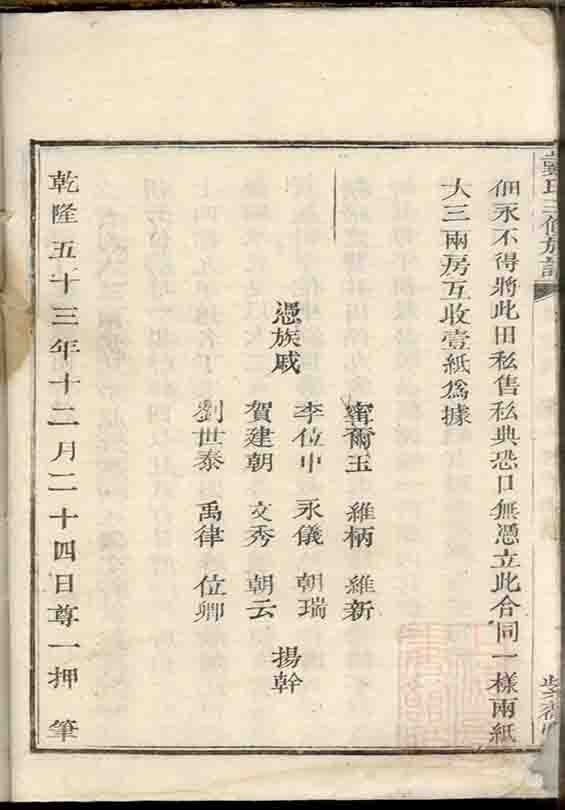 氏三修族譜
佃永不得將此田私售私典恐口無憑立此合同一樣兩紙
大三兩房互收壹紙爲據
爾玉 維柄 維新
李位中 永儀 朝瑞
憑族戚 揚幹
賀建朝 文秀 朝云
劉世泰 禹律 位卿
乾隆五十三年十二月二十四日尊一押 筆